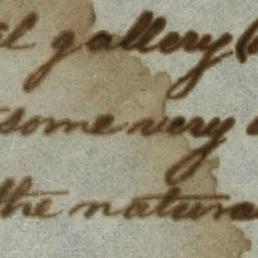 gallery (
some very
the natura